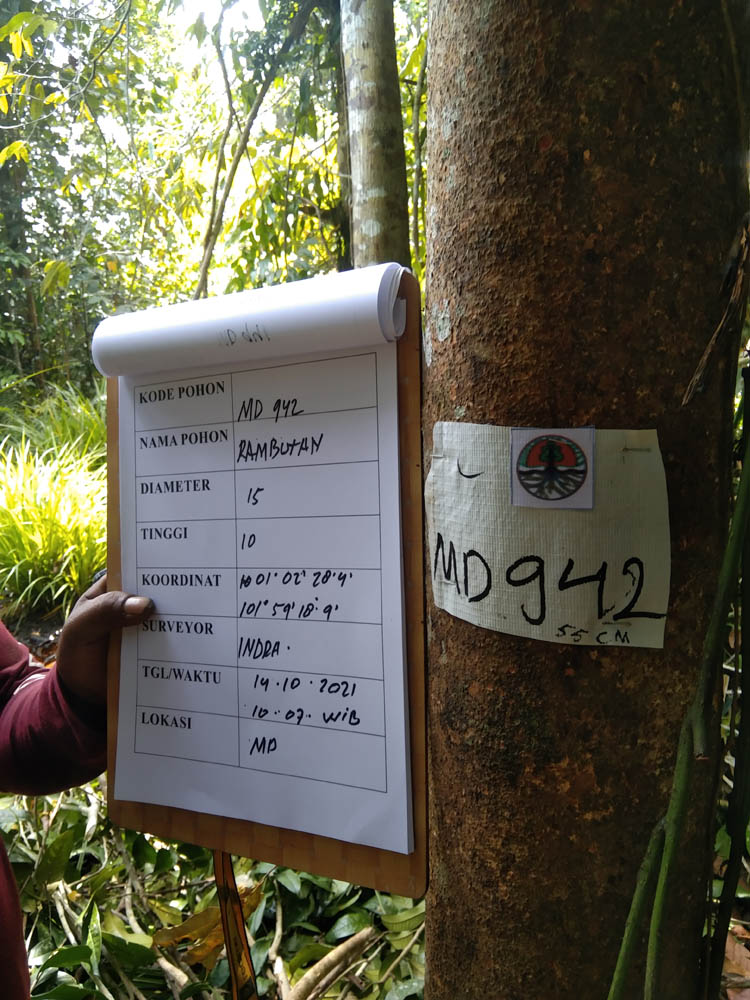 KODE POHON MD 942
NAMA POHON RAMBUTAN
DIAMETER 15
TINGGI 10
KOORDINAT 01° 02' 28.4"
101° 59' 18.9"
SURVEYOR INDRA.
TGL/WAKTU 14.10.2021
10.07. WIB
LOKASI MD
MD 942
55 CM